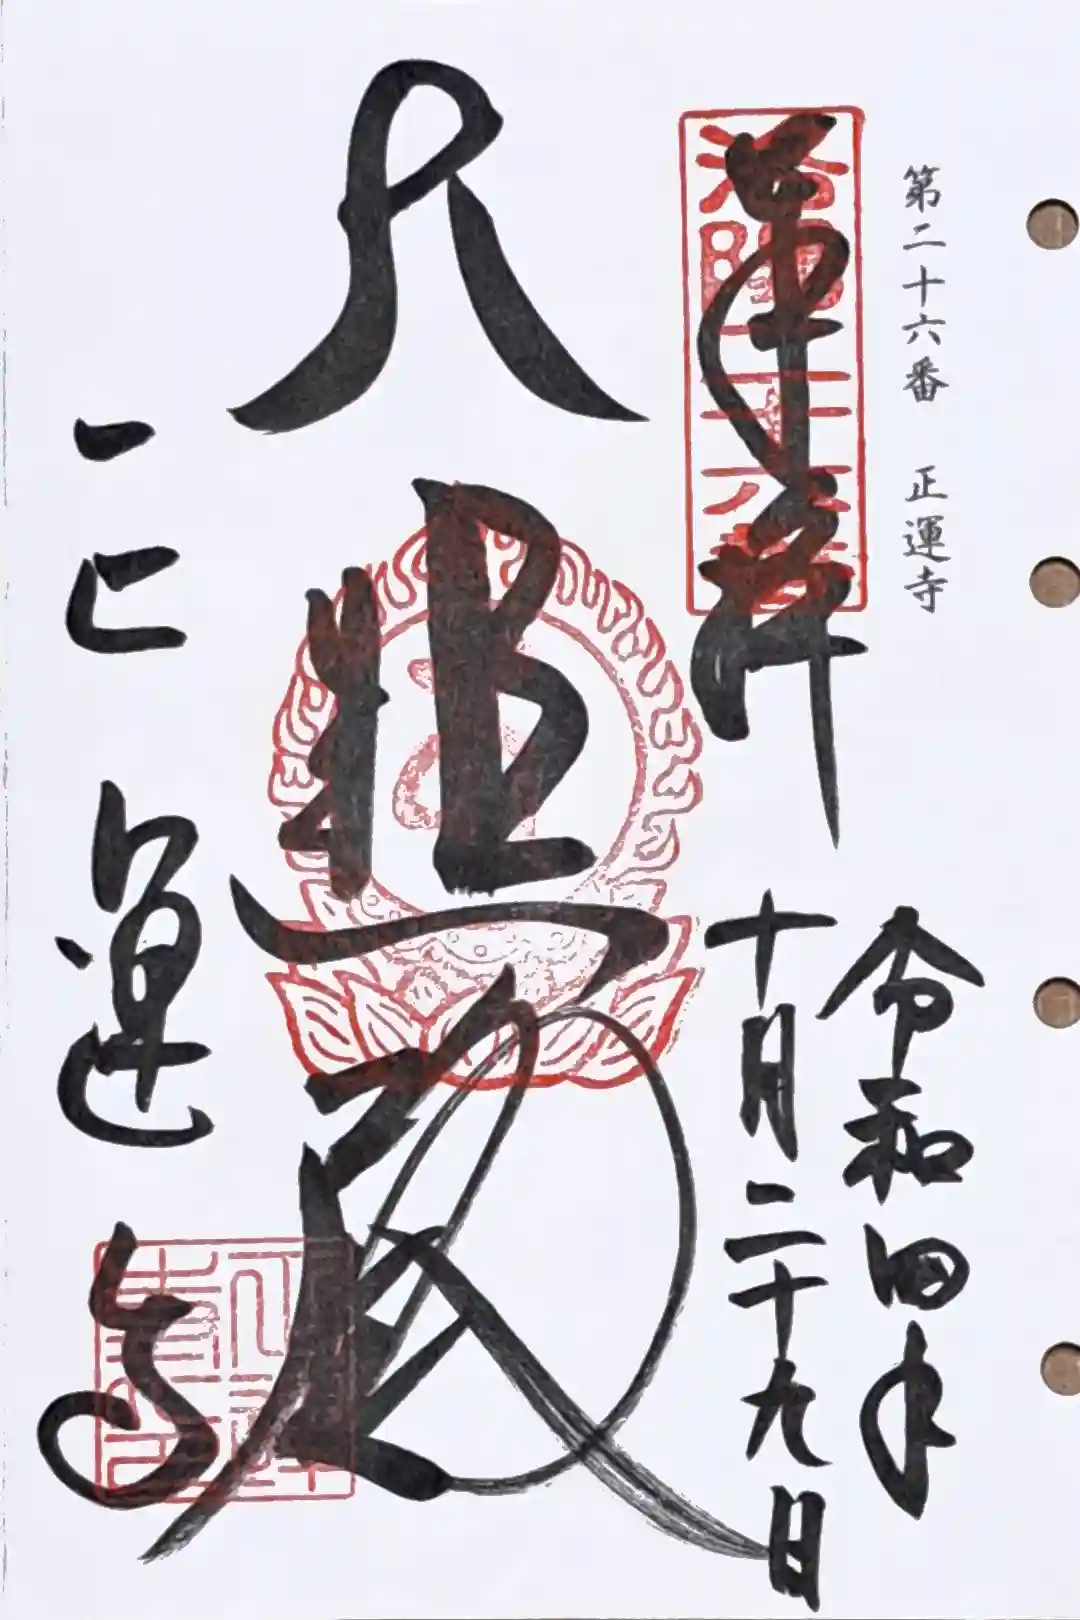 第二十六番　正運寺
洛陽二十六番
奉拝
令和四年
十月二十九日
大悲殿
正運寺